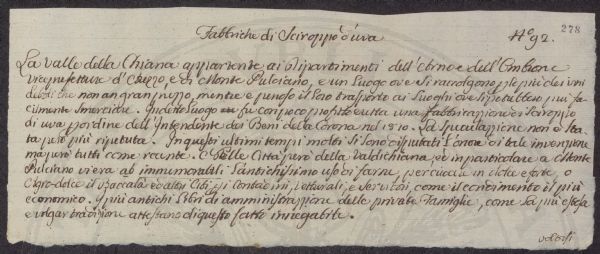 Fabbriche di Sciroppo d'uva
N.º 92.
278
La Valle della Chiana appartente ai Dipartimenti dell'Arno e dell'Ombrone
Viceprefetture d'Arezzo, e di Monte Pulciano, è un Luogo ove si raccolgono per più dei vini
deboli che non an gran prezzo, mentre è penoso il loro trasporto ai Luoghi ove si potrebbero più fa-
cilmente smerciare. In detto Luogo fu con poco profitto eretta una Fabbricazione di Sciroppo
di uva per ordine dell'Intendente dei Beni della Corona nel 1810. La Speculazione non è sta-
ta però più riputata. In questi ultimi tempi molti si sono disputati l'onore di tale invenzione
ma però tutti come recente. Nelle Città però della Valdichiana, ed in particolare a Monte
Pulciano vi era ab immemorabili l'antichissimo uso di farne, per cuocere in dolce e forte, o
Agro-dolce il Baccalà ed altri Cibi pei Contadini, Vetturali, e Servitori, come il condimento il più
economico. I più antichi Libri di amministrazione delle private Famiglie, come la più estesa
e volgar tradizione attestano di questo fatto innegabile.